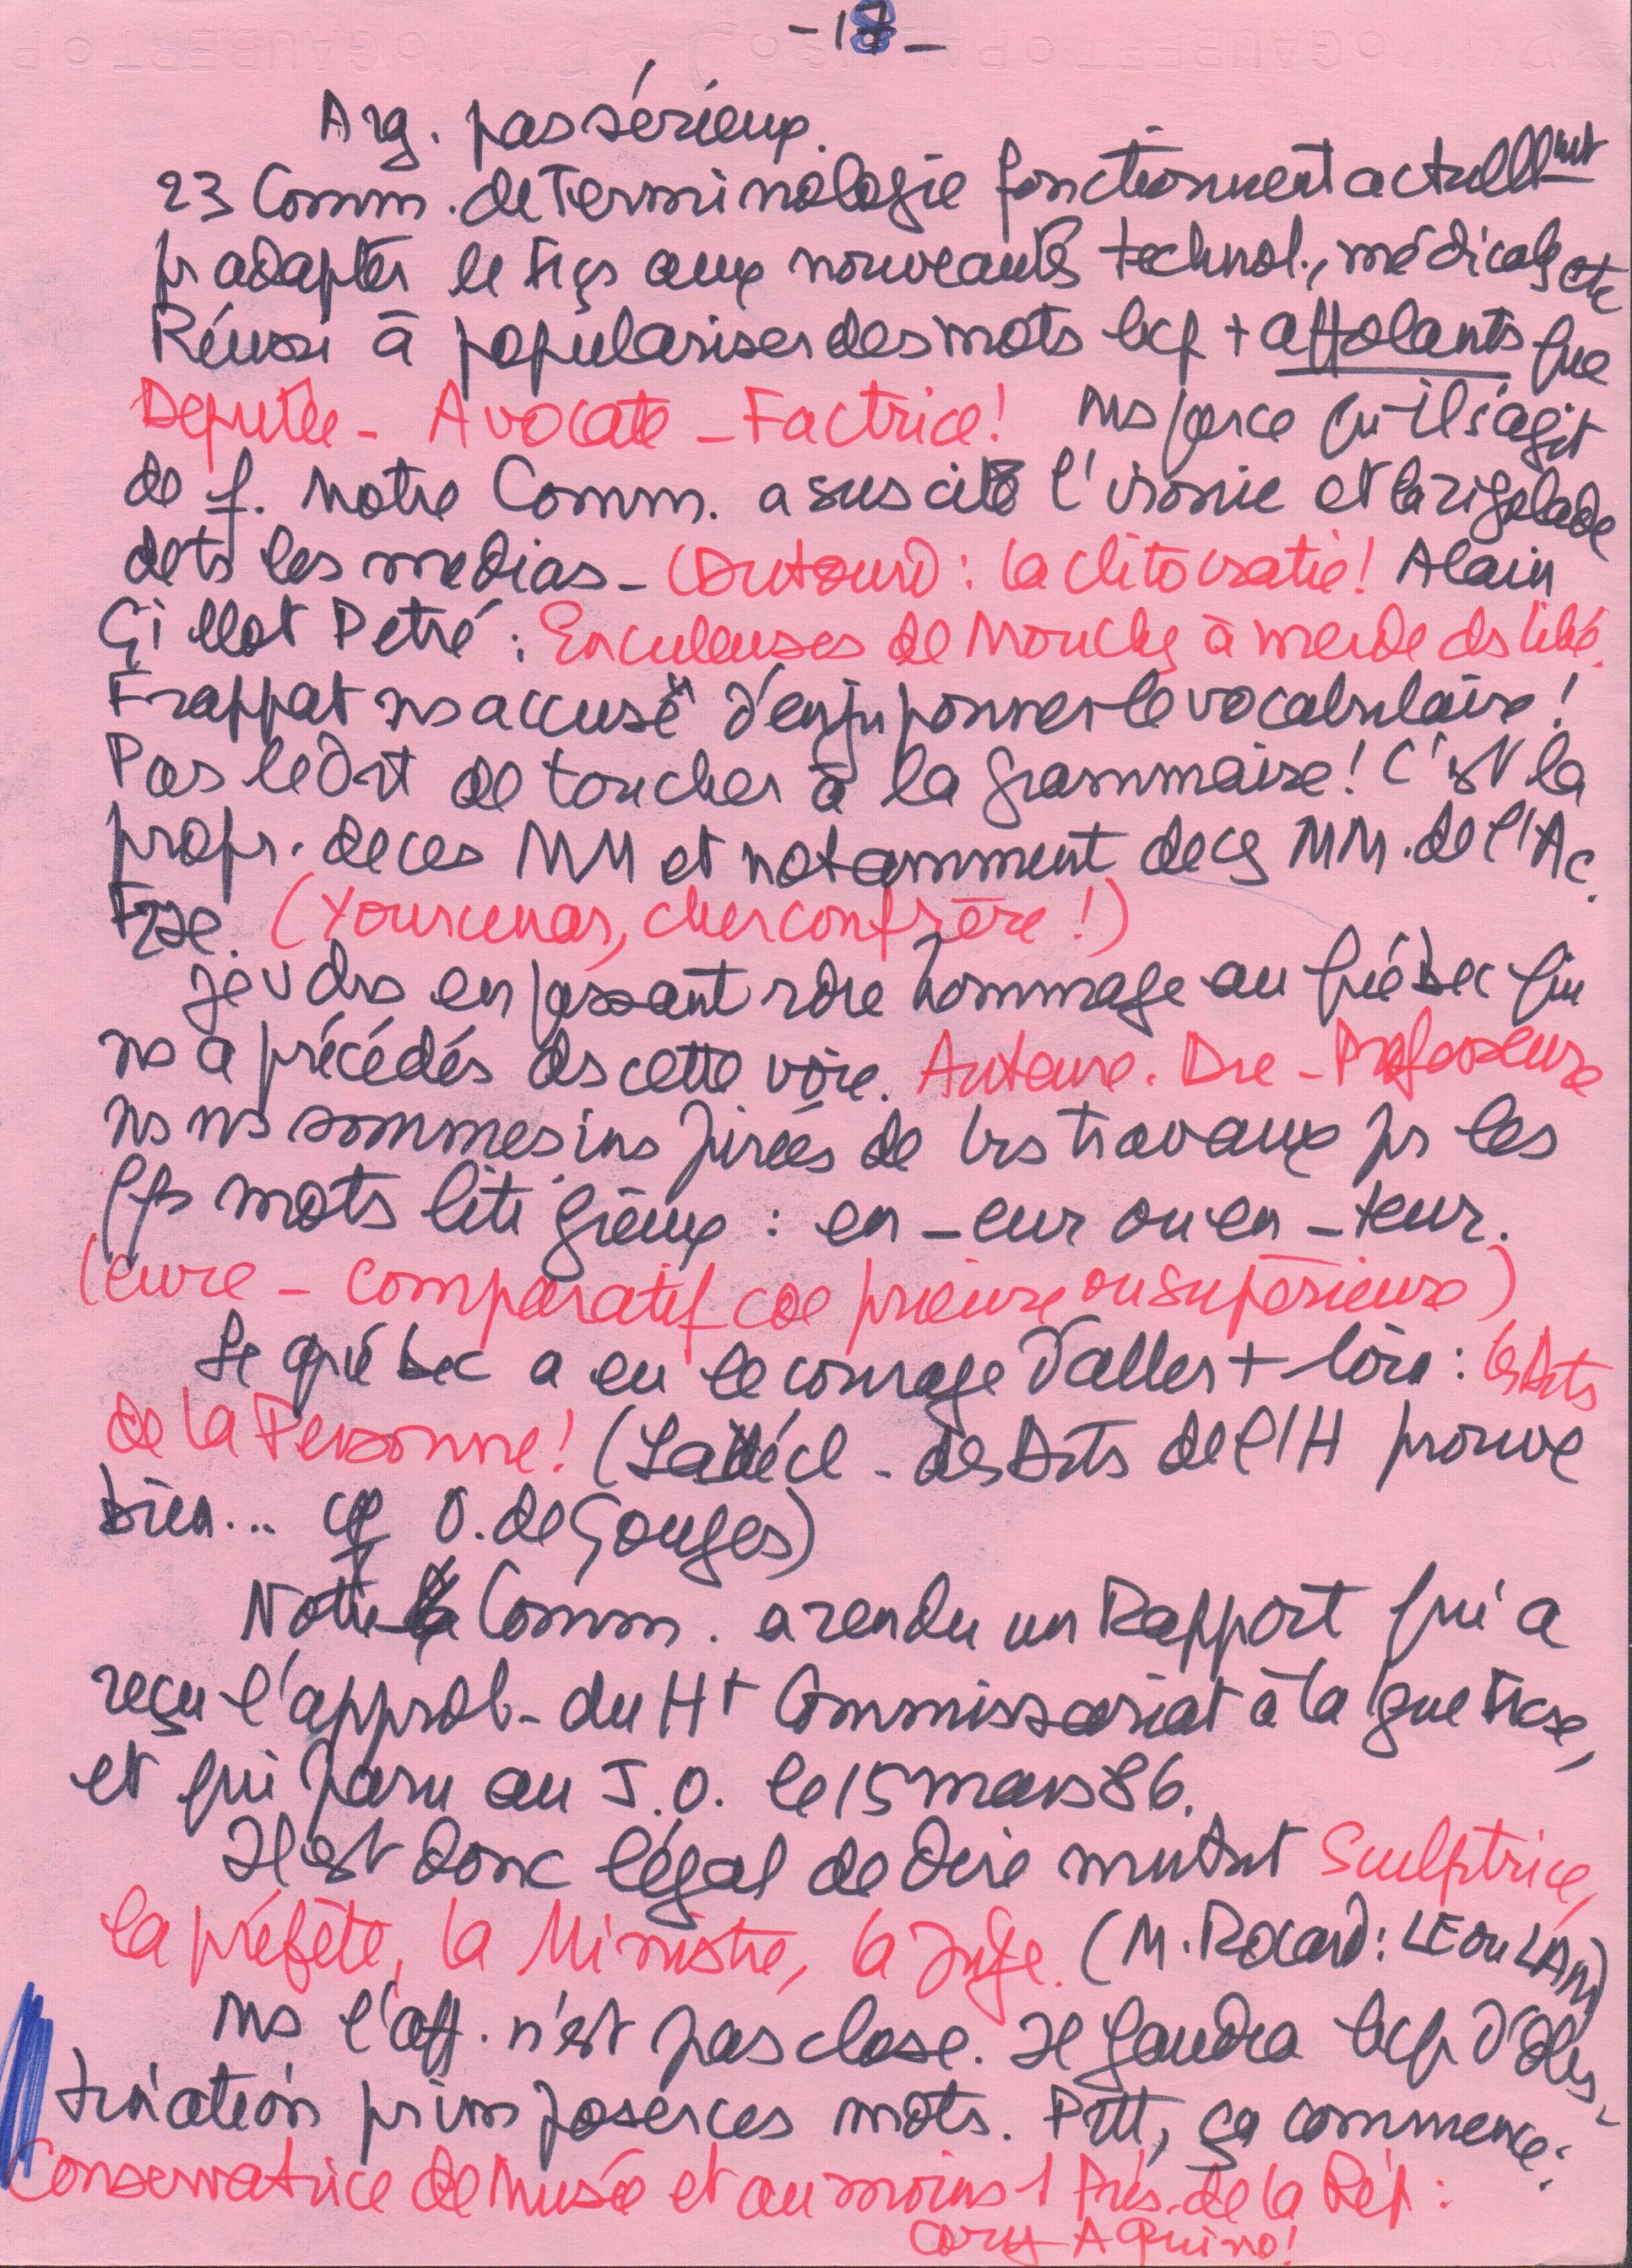 -18-
Arg. pas sérieux.
23 Comm. de Terminologie fonctionnent actuellmt
pr adapter le Fçs aux nouveautés technol., médicales etc
Réussi à populariser des mots bcp + affolants que
Députée - Avocate - Factrice! Ms parce qu'il s'agit
de f. Notre Comm. a suscité l'ironie et la rigolade
de ts les medias - (Dutourd : la clitocratie! Alain
Gillot Pétré : Enculeuses de Mouches à merde ds Libé.
Frappat ns accusé d'enjuponner le vocabulaire!
Pas le drt de toucher à la grammaire! C'est la
propr. de ces MM et notamment de ces MM. de l'Ac.
Fçse. (Yourcenar, cher confrère!)
je vdrs en passant rdre hommage au Québec qui
ns a précédés ds cette voie. Auteure. Dre - Professeure
Ns ns sommes inspirées de lrs travaux pr les
qqs mots litigieux : en -eur ou en -teur.
(eure - comparatif coe prieure ou supérieure)
Le Québec a eu le courage d'aller + loin : les Dts
de la Personne! (La décl - des Dts de l'H prouve
bien... cf O. de Gouges)
Notre Comm. a rendu un Rapport qui a
reçu l'approb- du Ht Commissariat à la lgue Fçse,
et qui paru au J.O. le 15 mars 86.
Il est donc légal de dire mntnt Sculptrice,
la préfète, la Ministre, la Juge. (M. Rocard : LE ou LA M)
Ms l'aff. n'est pas close. Il faudra bcp d'obs-
tination pr imposer ces mots. Prtt, ça commence :
Conservatrice de Musée et au moins 1 Prés. de la Rép :
Cory Aquino!